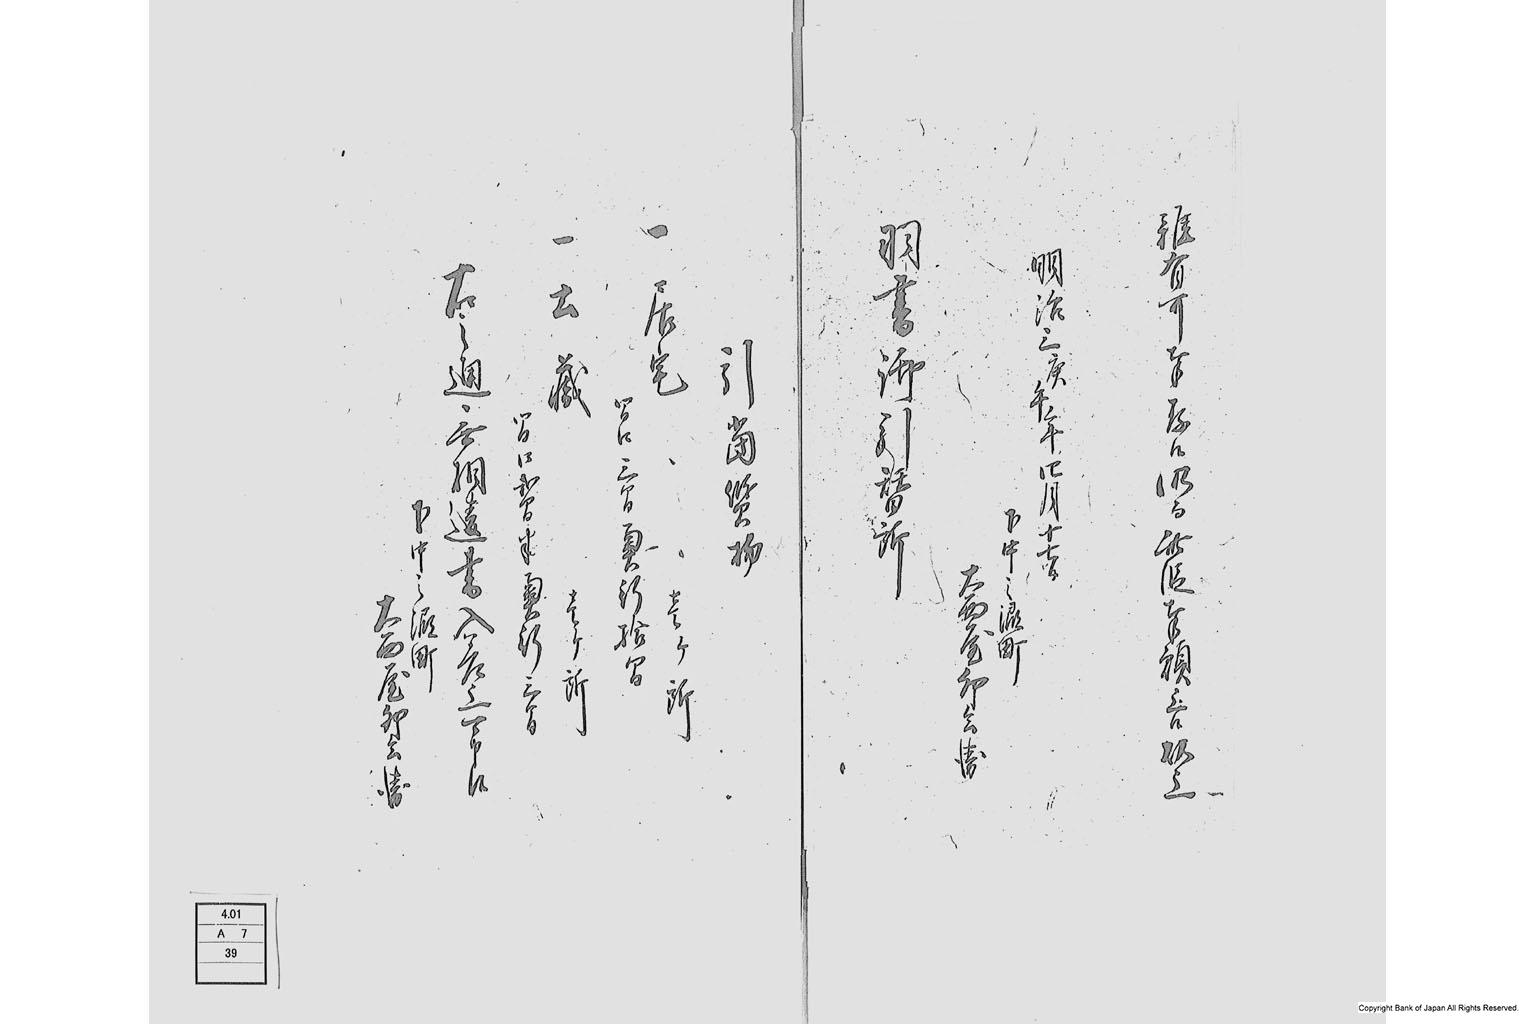 難有可奉存候仍而此段奉願上候以上
明治三庚午年四月十七日
下中之濃町
大西屋卯兵衛
羽書御引替所
引当質物
一居宅 壱ヶ所
間口三間奥行拾間
一土蔵 壱ヶ所
間口弐間半奥行三間
右之通無相違書入差上可申候
下中之濃町
大西屋卯兵衛
4.01
A 7
39
Copyright Bank of Japan All Rights Reserved.